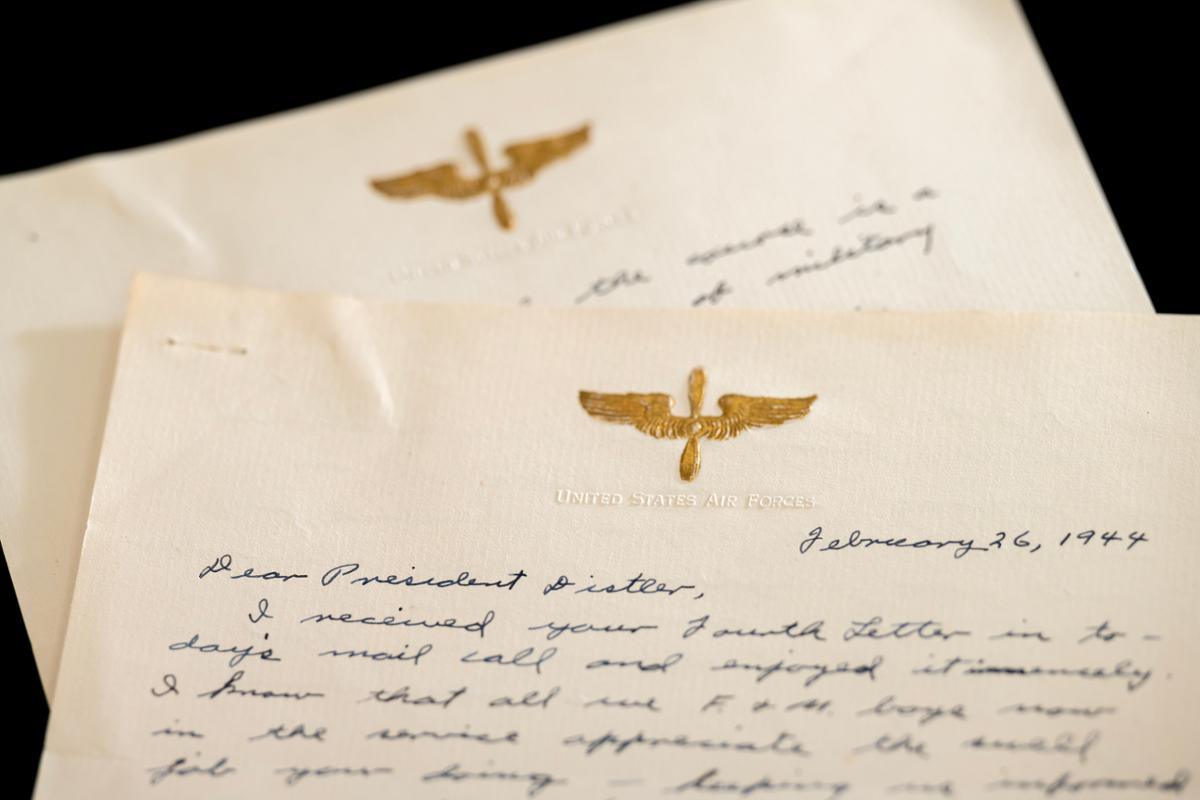 the course is a
of military
UNITED STATES AIR FORCES
February 26, 1944
Dear President Distler,
I received your Fourth Letter in to-
day's mail call and enjoyed it immensely.
I know that all we F. & M. boys now
in the service appreciate the swell
job your doing — keeping us informed